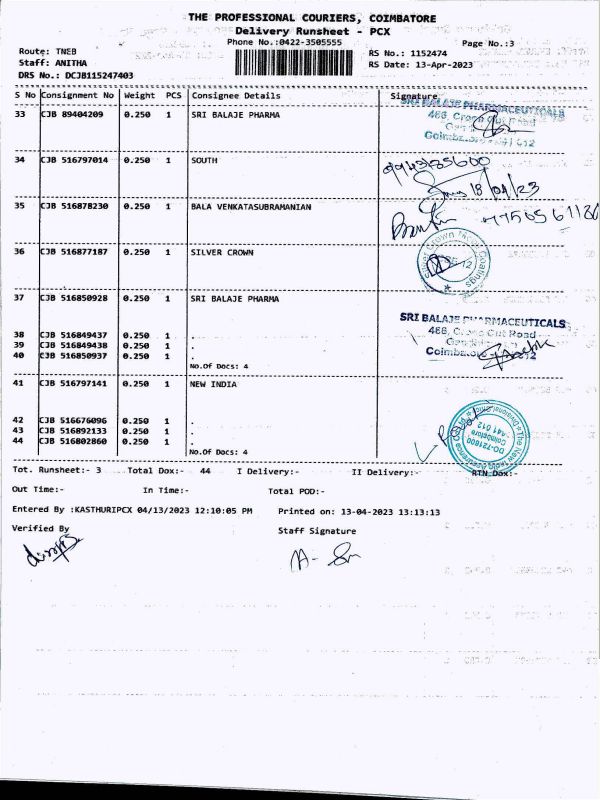 THE PROFESSIONAL COURIERS, COIMBATORE
Delivery Runsheet - PCX
Phone No.:0422-3505555 Page No.:3
Route: TNEB RS No.: 1152474
Staff: ANITHA RS Date: 13-Apr-2023
DRS No.: DCJB115247403
S No Consignment No Weight PCS Consignee Details Signature
33 CJB 89404209 0.250 1 SRI BALAJE PHARMA
SRI BALAJE PHARMACEUTICALS
34 CJB 516797014 0.250 1 SOUTH
18/04/23
35 CJB 516878230 0.250 1 BALA VENKATASUBRAMANIAN
36 CJB 516877187 0.250 1 SILVER CROWN
Silver Crown Metal Coatings
37 CJB 516850928 0.250 1 SRI BALAJE PHARMA
SRI BALAJE PHARMACEUTICALS
38 CJB 516849437 0.250 1 .
39 CJB 516849438 0.250 1 .
40 CJB 516850937 0.250 1 .
No.Of Docs: 4
41 CJB 516797141 0.250 1 NEW INDIA
42 CJB 516676096 0.250 1 .
43 CJB 516892133 0.250 1 .
44 CJB 516802860 0.250 1 .
No.Of Docs: 4
DO-721600
Coimbatore
641 012
Tot. Runsheet:- 3 Total Dox:- 44 I Delivery:- II Delivery:- RTN Dox:-
Out Time:- In Time:- Total POD:-
Entered By :KASTHURIPCX 04/13/2023 12:10:05 PM Printed on: 13-04-2023 13:13:13
Verified By Staff Signature